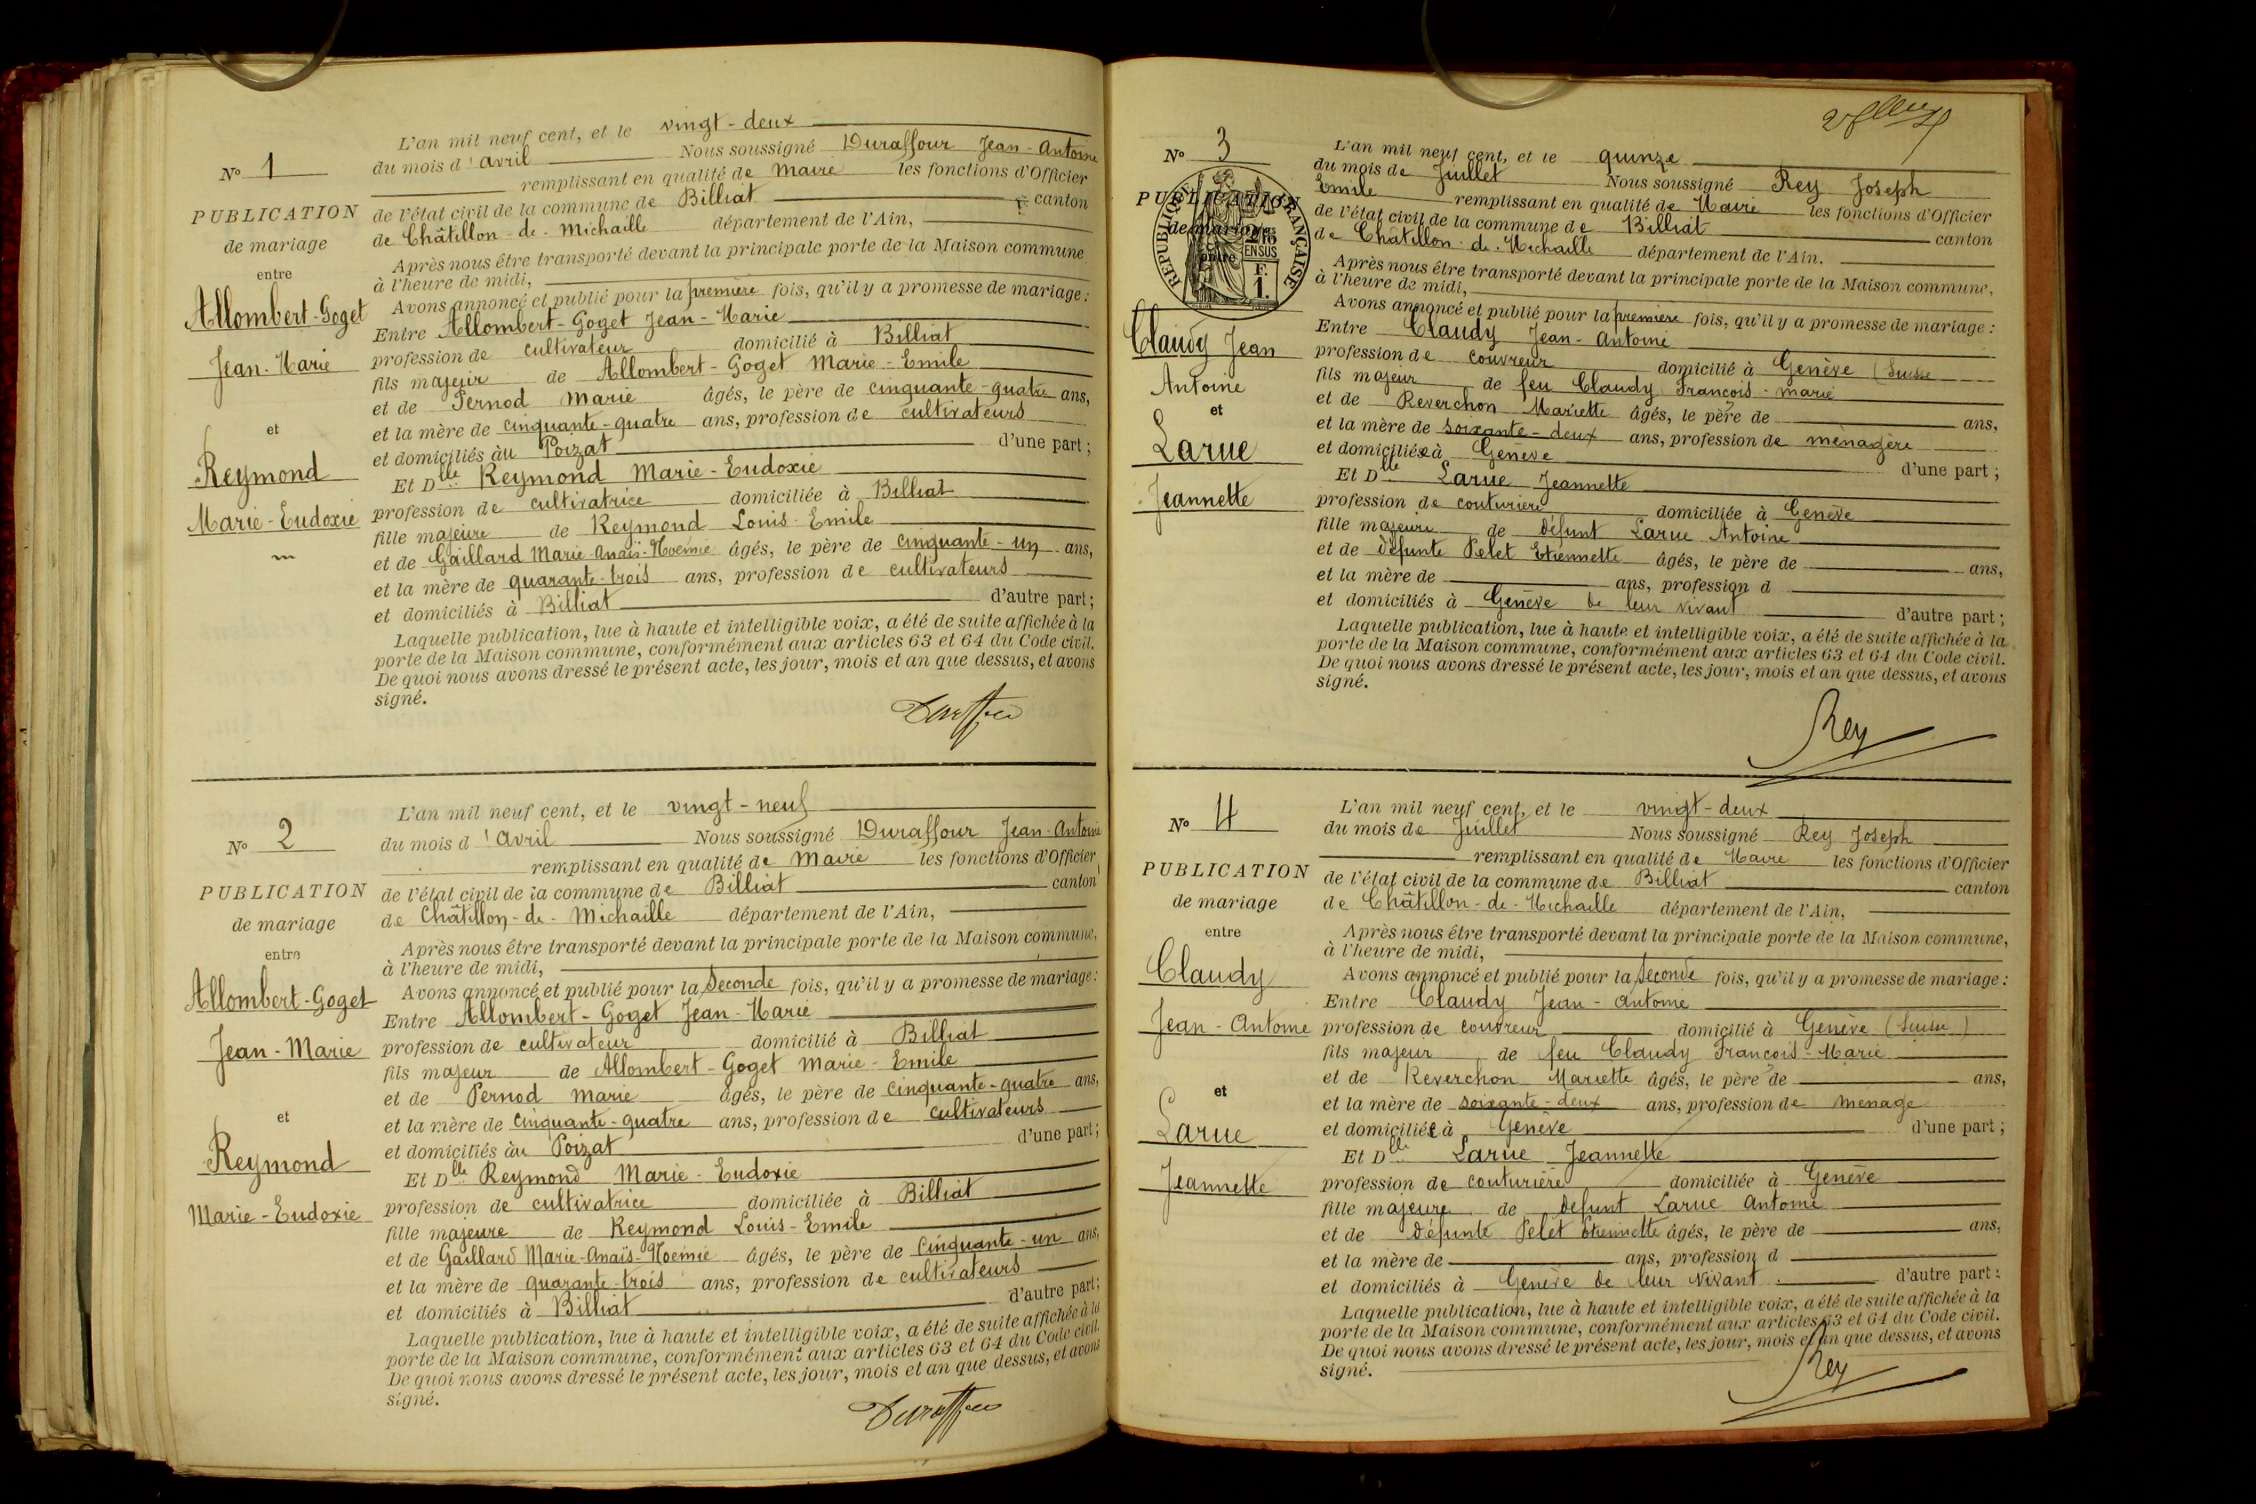 N° 1
PUBLICATION
de mariage
entre
Allombert-Goget
Jean-Marie
et
Reymond
Marie-Eudoxie
L'an mil neuf cent, et le vingt-deux
du mois d'avril Nous soussigné Duraffour Jean-Antoine
remplissant en qualité de Maire les fonctions d'Officier
de l'état civil de la commune de Billiat canton
de Châtillon-de-Michaille département de l'Ain,
Après nous être transporté devant la principale porte de la Maison commune
à l'heure de midi,
Avons annoncé et publié pour la première fois, qu'il y a promesse de mariage:
Entre Allombert-Goget Jean-Marie
profession de cultivateur domicilié à Billiat
fils majeur de Allombert-Goget Marie-Emile
et de Pernod Marie âgés, le père de cinquante-quatre ans,
et la mère de cinquante-quatre ans, profession de cultivateurs
et domiciliés au Poizat d'une part;
Et Dlle Reymond Marie-Eudoxie
profession de cultivatrice domiciliée à Billiat
fille majeure de Reymond Louis-Emile
et de Gaillard Marie-Anaïs-Noémie âgés, le père de cinquante-un ans,
et la mère de quarante-trois ans, profession de cultivateurs
et domiciliés à Billiat d'autre part;
Laquelle publication, lue à haute et intelligible voix, a été de suite affichée à la
porte de la Maison commune, conformément aux articles 63 et 64 du Code civil.
De quoi nous avons dressé le présent acte, les jour, mois et an que dessus, et avons
signé.
N° 2
PUBLICATION
de mariage
entre
Allombert-Goget
Jean-Marie
et
Reymond
Marie-Eudoxie
L'an mil neuf cent, et le vingt-neuf
du mois d'avril Nous soussigné Duraffour Jean-Antoine
remplissant en qualité de Maire les fonctions d'Officier
de l'état civil de la commune de Billiat canton
de Châtillon-de-Michaille département de l'Ain,
Après nous être transporté devant la principale porte de la Maison commune,
à l'heure de midi,
Avons annoncé et publié pour la seconde fois, qu'il y a promesse de mariage:
Entre Allombert-Goget Jean-Marie
profession de cultivateur domicilié à Billiat
fils majeur de Allombert-Goget Marie-Emile
et de Pernod Marie âgés, le père de cinquante-quatre ans,
et la mère de cinquante-quatre ans, profession de cultivateurs
et domiciliés au Poizat d'une part;
Et Dlle Reymond Marie-Eudoxie
profession de cultivatrice domiciliée à Billiat
fille majeure de Reymond Louis-Emile
et de Gaillard Marie-Anaïs-Noémie âgés, le père de cinquante-un ans,
et la mère de quarante-trois ans, profession de cultivateurs
et domiciliés à Billiat d'autre part;
Laquelle publication, lue à haute et intelligible voix, a été de suite affichée à la
porte de la Maison commune, conformément aux articles 63 et 64 du Code civil.
De quoi nous avons dressé le présent acte, les jour, mois et an que dessus, et avons
signé.
N° 3
PUBLICATION
de mariage
entre
RÉPUBLIQUE FRANÇAISE
2/10
EN SUS
F.
1.
Claudy Jean
Antoine
et
Larue
Jeannette
L'an mil neuf cent, et le quinze
du mois de Juillet Nous soussigné Rey Joseph
Emile remplissant en qualité de Maire les fonctions d'Officier
de l'état civil de la commune de Billiat canton
de Chatillon-de-Michaille département de l'Ain.
Après nous être transporté devant la principale porte de la Maison commune,
à l'heure de midi,
Avons annoncé et publié pour la première fois, qu'il y a promesse de mariage:
Entre Claudy Jean-Antoine
profession de couvreur domicilié à Genève (Suisse
fils majeur de feu Claudy François-marie
et de Reverchon Mariette âgés, le père de ans,
et la mère de soixante-deux ans, profession de ménagère
et domiciliée à Genève d'une part;
Et Dlle Larue Jeannette
profession de couturière domiciliée à Genève
fille majeure de défunt Larue Antoine
et de défunte Pelet Etiennette âgés, le père de ans,
et la mère de ans, profession d
et domiciliés à Genève de leur vivant d'autre part;
Laquelle publication, lue à haute et intelligible voix, a été de suite affichée à la
porte de la Maison commune, conformément aux articles 63 et 64 du Code civil.
De quoi nous avons dressé le présent acte, les jour, mois et an que dessus, et avons
signé.
Rey
N° 4
PUBLICATION
de mariage
entre
Claudy
Jean-Antoine
et
Larue
Jeannette
L'an mil neuf cent, et le vingt-deux
du mois de Juillet Nous soussigné Rey Joseph
remplissant en qualité de Maire les fonctions d'Officier
de l'état civil de la commune de Billiat canton
de Châtillon-de-Michaille département de l'Ain,
Après nous être transporté devant la principale porte de la Maison commune,
à l'heure de midi,
Avons annoncé et publié pour la seconde fois, qu'il y a promesse de mariage:
Entre Claudy Jean-Antoine
profession de couvreur domicilié à Genève (Suisse)
fils majeur de feu Claudy François-Marie
et de Reverchon Mariette âgés, le père de ans,
et la mère de soixante-deux ans, profession de ménage
et domiciliée à Genève d'une part;
Et Dlle Larue Jeannette
profession de couturière domiciliée à Genève
fille majeure de défunt Larue Antoine
et de défunte Pelet Etiennette âgés, le père de ans,
et la mère de ans, profession d
et domiciliés à Genève de leur vivant d'autre part:
Laquelle publication, lue à haute et intelligible voix, a été de suite affichée à la
porte de la Maison commune, conformément aux articles 63 et 64 du Code civil.
De quoi nous avons dressé le présent acte, les jour, mois et an que dessus, et avons
signé.
Rey